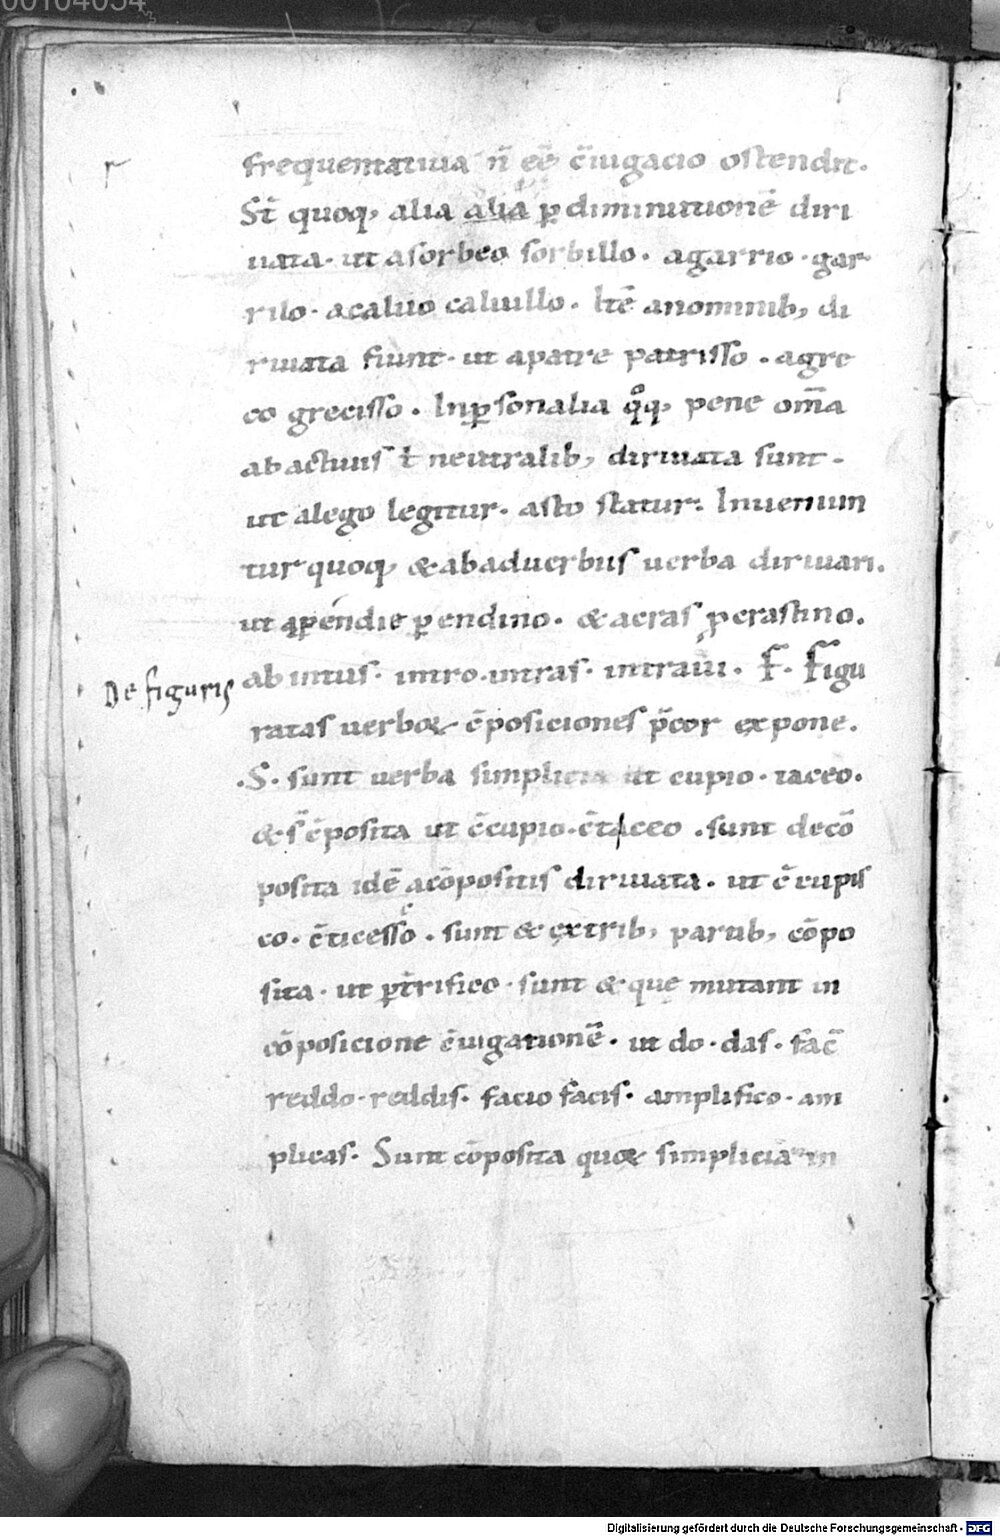 00104054
frequentatiua n̄ eē c̄iugacio ostendit.
St̄ quoq; alia alia ꝑ diminutionē diri
uata. ut a sorbeo sorbillo. a garrio. gar
rilo. a caluo caluillo. Itē a nominib; di
riuata fiunt. ut a patre patrisso. a gre
co grecisso. Inꝑsonalia qͦq; pene om̄a
ab actiuis ł neutralib; diriuata sunt.
ut a lego legitur. a sto statur. Inueniun
tur quoq; & ab aduerbiis uerba diriuari.
ut a ꝑendie ꝑendino. & a cras ꝓcrastino.
ab intus. intro. intras. intraui. F. Figu
De figuris
ratas uerboꝝ c̄posiciones p̄cor expone.
.S. sunt uerba simplicia ut cupio. taceo.
& s̄ c̄posita ut c̄cupio. c̄taceo. sunt decō
posita idē a cōpositis diriuata. ut c̄cupis
co. c̄ticesco. sunt & ex trib; partib; cōpo
sita. ut ꝑt̄rifico. sunt & quę mutant in
cōposicione c̄iugationē. ut do. das. fac̄
reddo. reddis. facio facis. amplifico. am
plicas. Sunt cōposita quoꝝ simplicia in
Digitalisierung gefördert durch die Deutsche Forschungsgemeinschaft - DFG